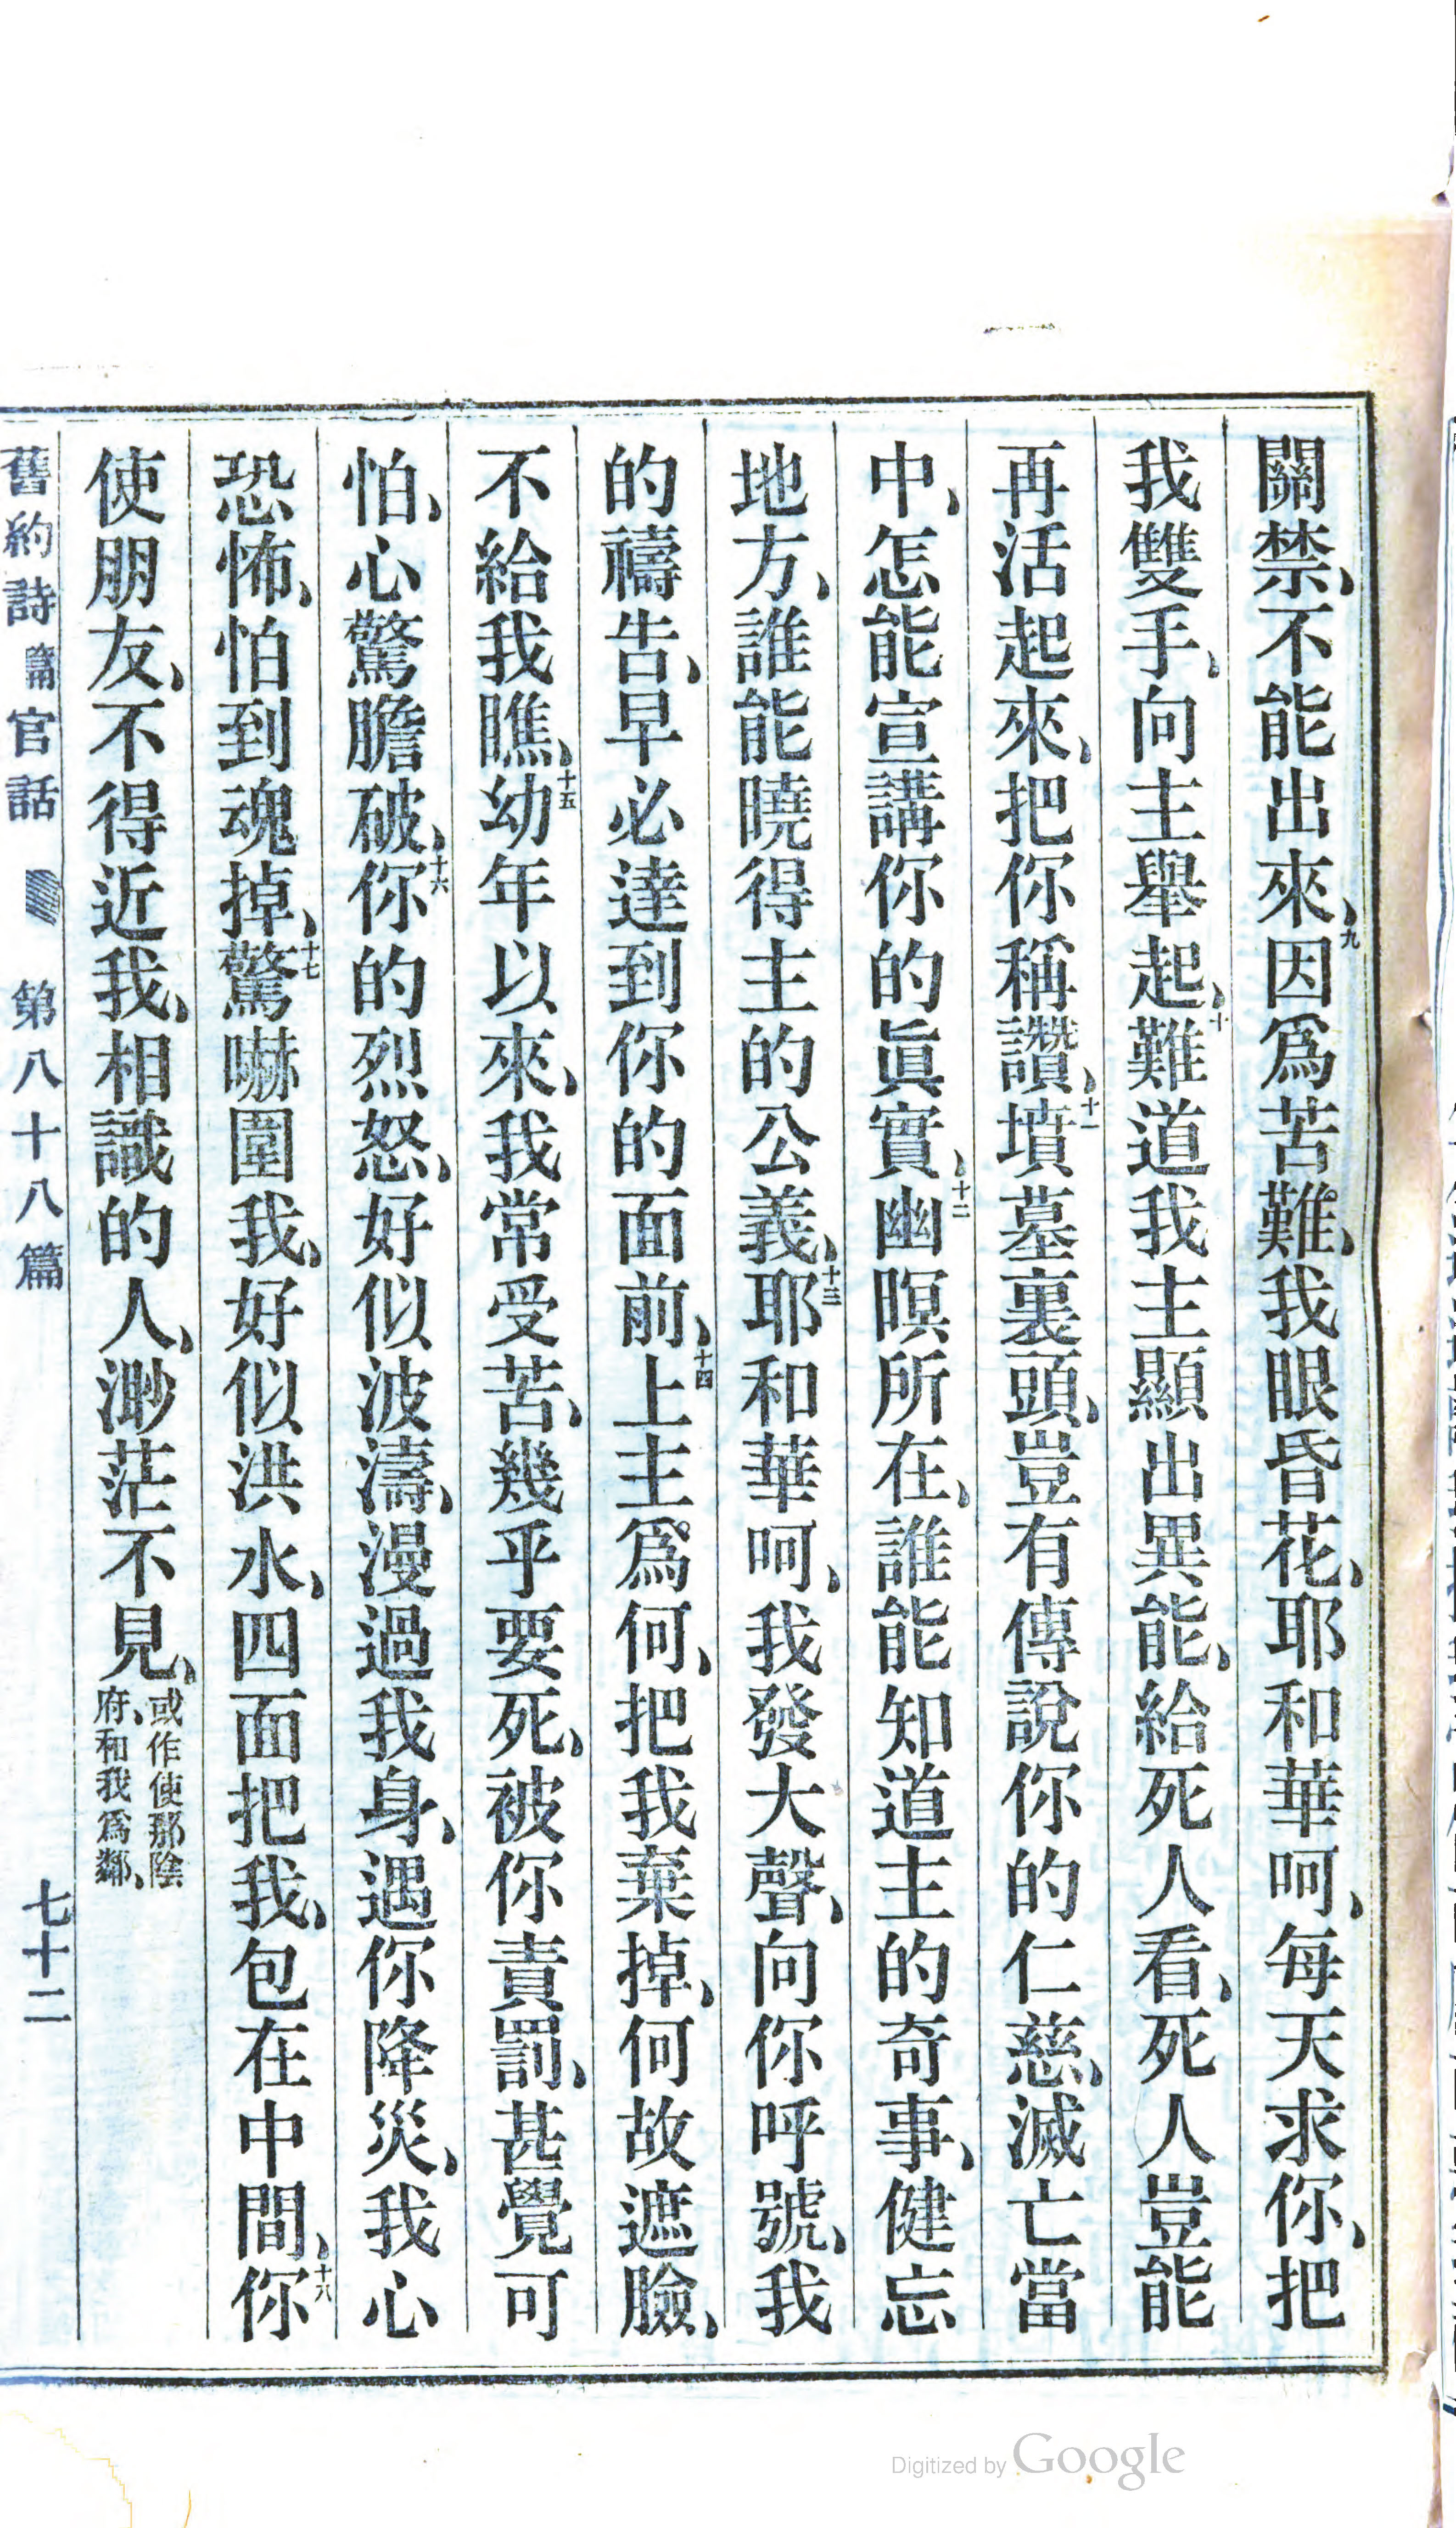 關禁、不能出來、九因爲苦難、我眼昏花、耶和華呵、每天求你、把
我雙手、向主舉起、十難道我主顯出異能、給死人看、死人豈能
再活起來、把你稱讚、十一墳墓裏頭、豈有傳說你的仁慈、滅亡當
中、怎能宣講你的眞實、十二幽暝所在、誰能知道主的奇事、健忘
地方、誰能曉得主的公義、十三耶和華呵、我發大聲、向你呼號、我
的禱告、早必達到你的面前、十四上主爲何、把我棄掉、何故遮臉、
不給我瞧、十五幼年以來、我常受苦、幾乎要死、被你責罰、甚覺可
怕、心驚膽破、十六你的烈怒、好似波濤、漫過我身、遇你降災、我心
恐怖、怕到魂掉、十七驚嚇圍我、好似洪水、四面把我、包在中間、十八你
使朋友、不得近我、相識的人、渺茫不見、或作使那陰府、和我爲鄰、
舊約詩篇官話 第八十八篇 七十二
Digitized by Google